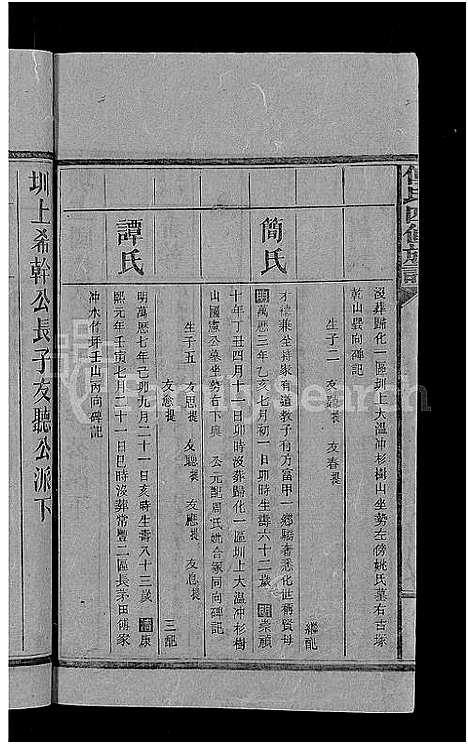 傅氏四修族譜
沒葬歸化一區圳上大溫冲杉樹山坐勢左傍姚氏墓右古塚
乾山巽向碑記
生子二 友聽 友春
繼配
簡氏
才德兼全持家有道教子有方富甲一鄉驕奢悉化世稱賢母
明萬歷三年乙亥七月初一日卯時生壽六十二歲明崇禎
十年丁丑四月十一日卯時沒葬歸化一區圳上大溫冲杉樹
山國憲公墓坐勢右下與 公元配周氏妣合冢同向碑記
生子五 友思 友聰 友應 友息
友愈
三配
譚氏
明萬歷七年己卯九月二十一日亥時生壽八十三歲清康
熙元年壬寅七月二十一日巳時沒葬常豐二區長茅田傅家
冲水竹坪壬山丙向碑記
圳上希幹公長子友聽公派下